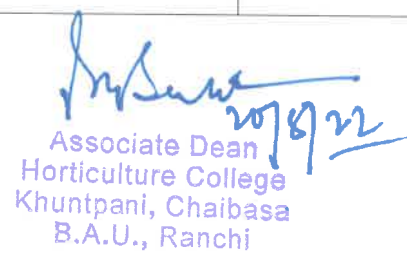 20/8/22
Associate Dean
Horticulture College
Khuntpani, Chaibasa
B.A.U., Ranchi